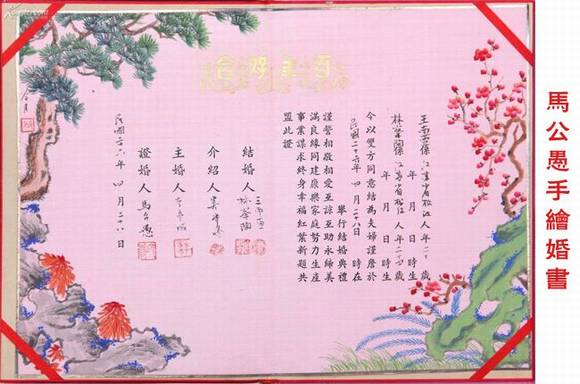 馬公愚手繪婚書
百年好合
江蘇省松江人年二十 歲
年 月 日 時生
江蘇省松江人年二十四歲
年 月 日 時生
今以雙方同意結為夫婦謹詹於
民國二十六年 四月二十八日 時在
舉行結婚典禮
謹誓相敬相愛互諒互助永締美
滿良緣同建康樂家庭努力生產
事業謀求終身幸福紅葉新題共
盟此證
結婚人
介紹人
主婚人
證婚人 馬公愚
民國二十六年 四月二十八日